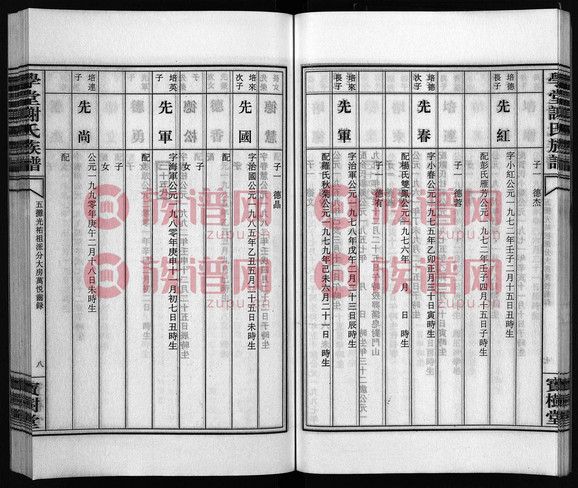 學堂謝氏族譜
寶樹堂
培德長子
先紅
字小紅公元一九七二年壬子二月十五日丑時生
配彭氏雁芳公元一九七二年壬子四月十五日子時生
子一 德杰
培德次子
先春
字小春公元一九七五年乙卯正月三十日寅時生
配楊氏雙鳳公元一九七六年 月 日 時生
子一 德蓉
培來長子
先軍
字治軍公元一九七八年戊午二月二十三日辰時生
配羅氏秋菊公元一九七九年己未六月二十一日 時生
子一 德有
培來次子
先國
字治國公元一九八五年乙丑五月二十五日未時生
配
子一 德晶
培英子
先軍
字海軍公元一九八〇年庚申十一月初七日丑時生
配
子
女
培達子
先尚
公元一九九〇年庚午二月十八日未時生
配
學堂謝氏族譜
五攤光祐祖派分大房萬悅齒錄
八
寶樹堂
族譜网
zupu.cn
族譜网
zupu.cn